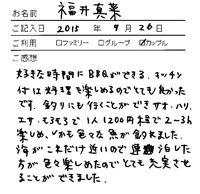 お名前 福井真菜
ご記入日 2015年 4月 26日
ご利用 □ファミリー □グループ ☑カップル
ご感想
好きな時間にBBQができる、キッチン
付は料理を楽しめるのでとても良かった
です。釣りにも行くことができ、サオ、ハリ、
エサ、もろもろで1人1200円程で2〜3h
楽しめ、しかも色々な魚が釣れました。
海がこれだけ近いので 連泊した
方が色々楽しめたのでとても充実させ
ることができました。